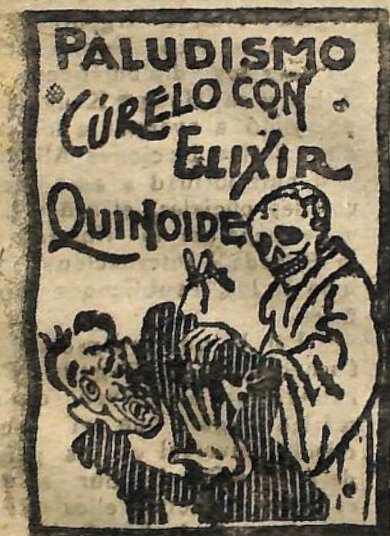 PALUDISMO
CÚRELO CON
ELIXIR
QUINOIDE